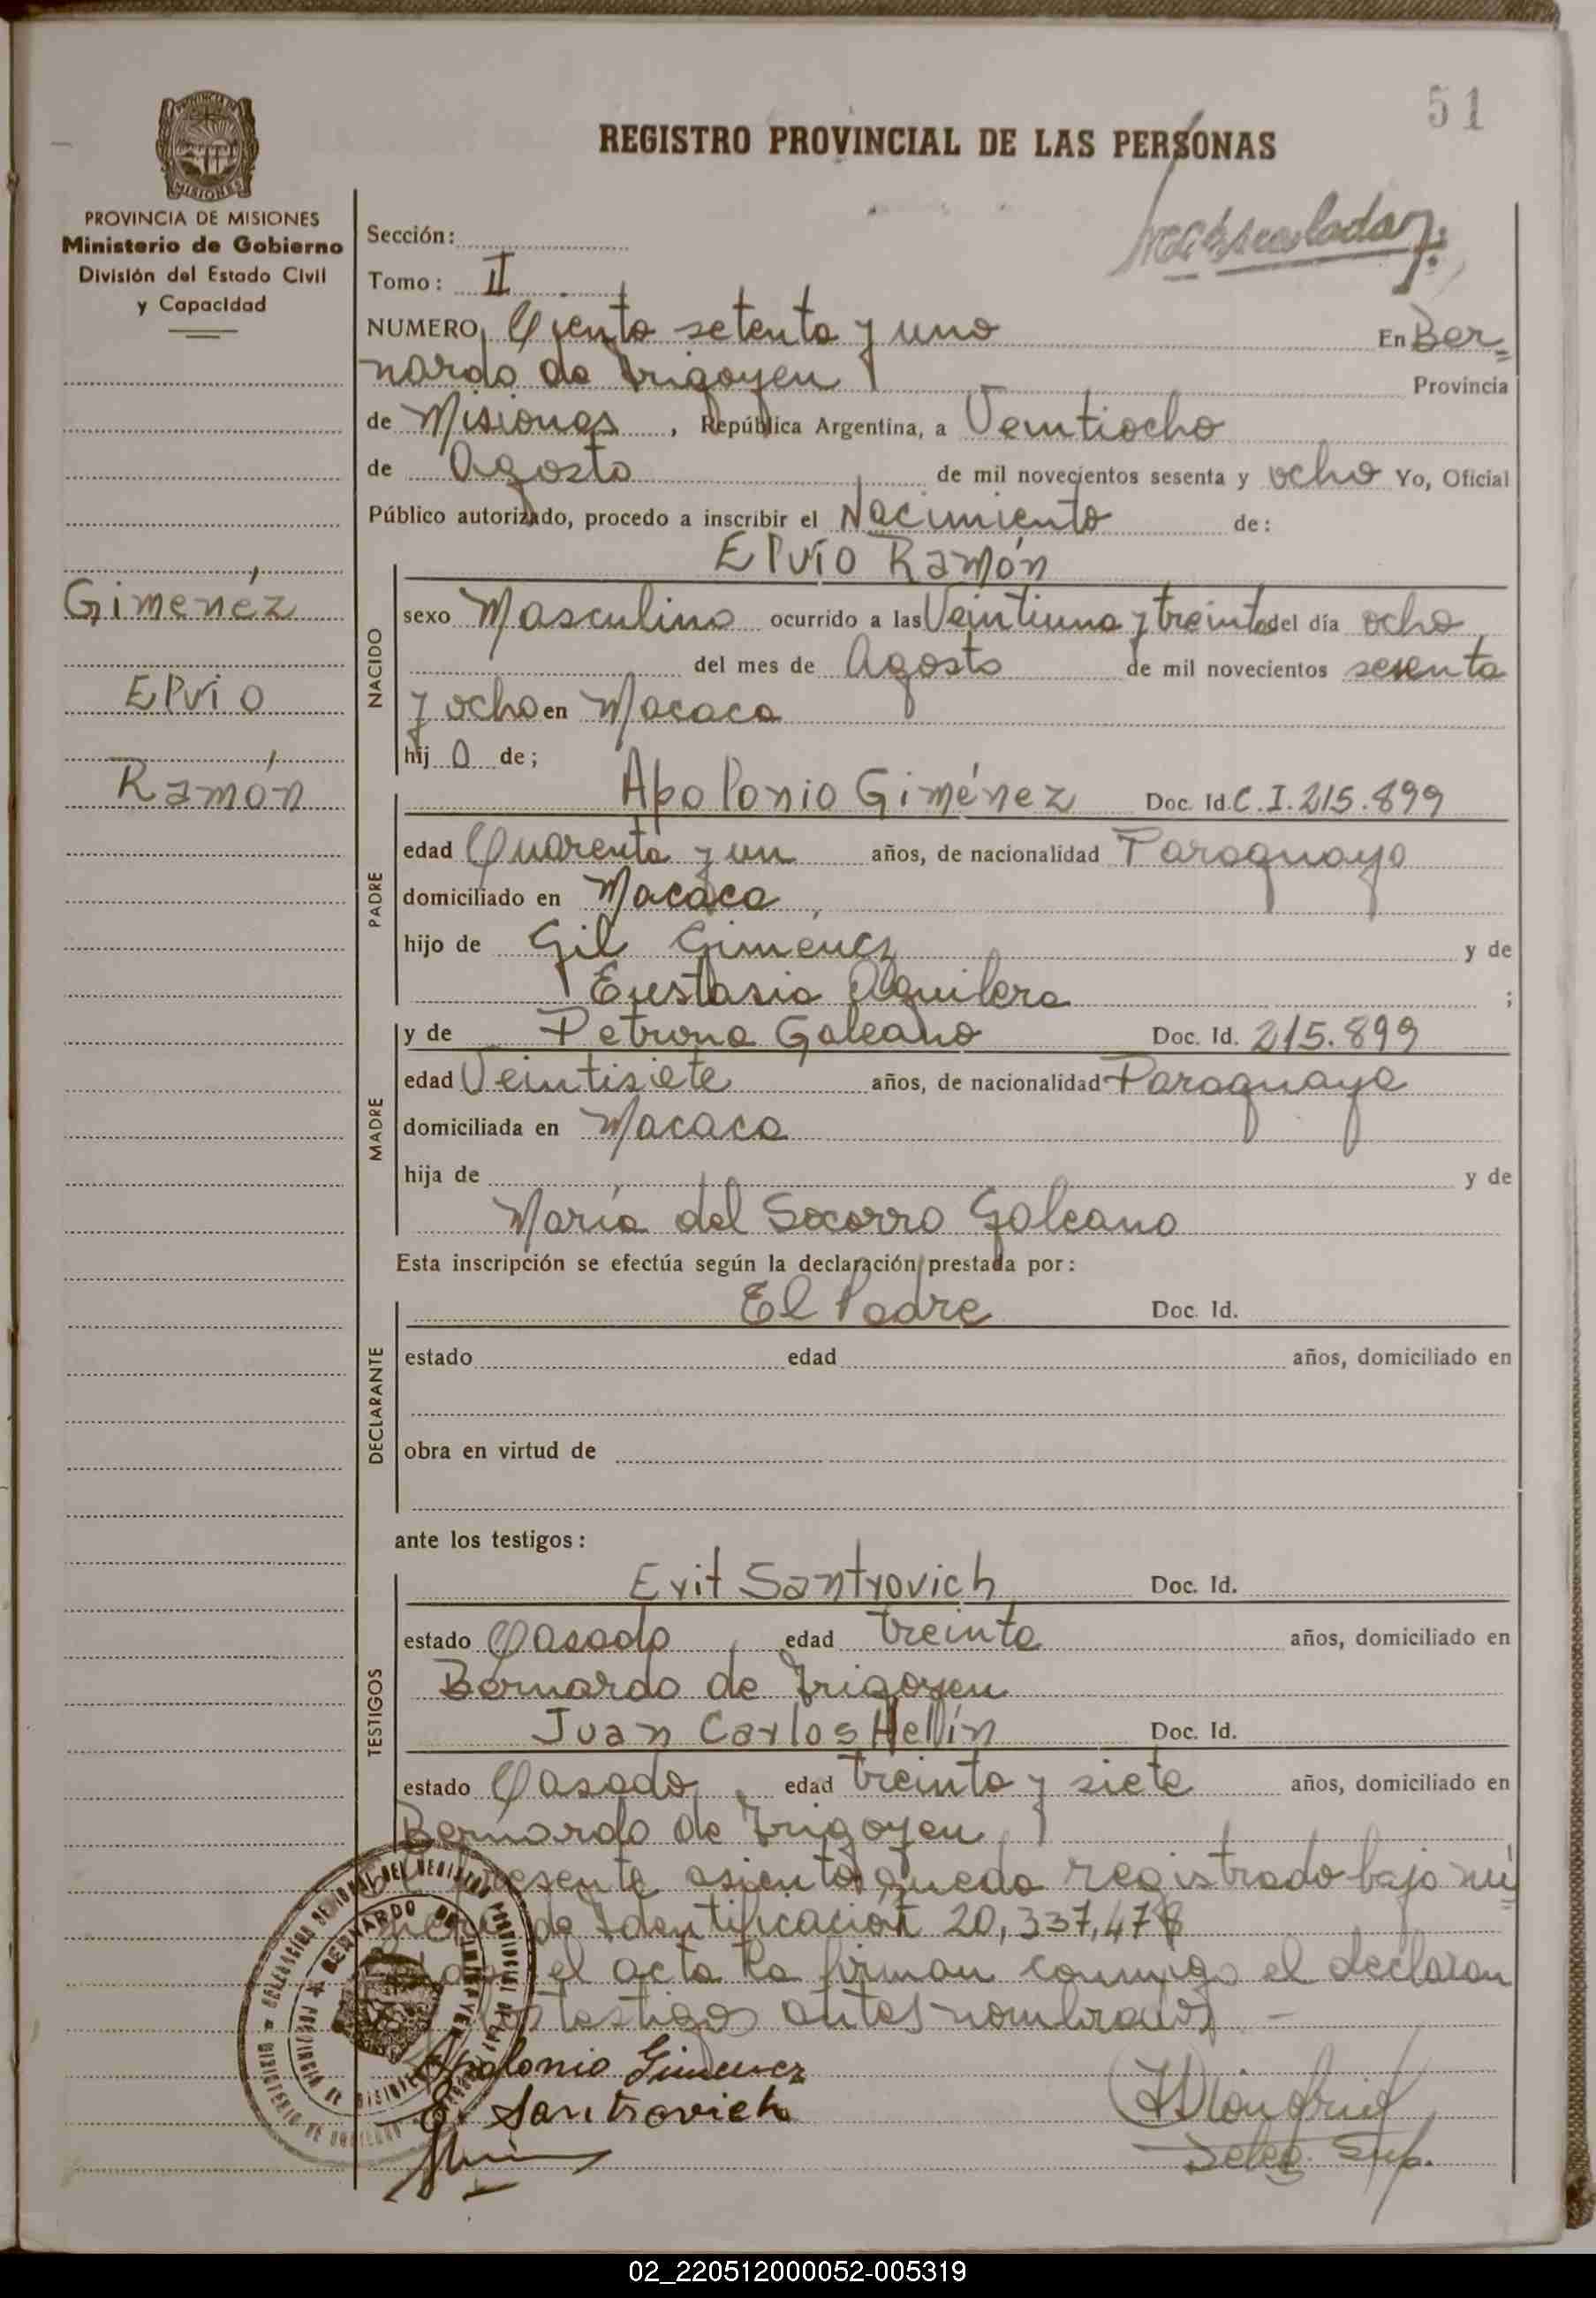 51
REGISTRO PROVINCIAL DE LAS PERSONAS
PROVINCIA DE MISIONES
Ministerio de Gobierno
División del Estado Civil
y Capacidad
Giménez
Elvio
Ramón
Sección:
Tomo: II
NUMERO Ciento setenta y uno En Ber=
nardo de Irigoyen Provincia
de Misiones, República Argentina, a Veintiocho
de Agosto de mil novecientos sesenta y ocho Yo, Oficial
Público autorizado, procedo a inscribir el Nacimiento de:
NACIDO
Elvio Ramón
sexo Masculino ocurrido a las Veintiuna y treinta del día ocho
del mes de Agosto de mil novecientos sesenta
y ocho en Macaca
hij o de;
PADRE
Apolonio Giménez Doc. Id. C.I. 215.899
edad Cuarenta y un años, de nacionalidad Paraguaya
domiciliado en Macaca
hijo de Gil Giménez y de
Eustasia Aguilera ;
MADRE
y de Petrona Galeano Doc. Id. 215.899
edad Veintisiete años, de nacionalidad Paraguaya
domiciliada en Macaca
hija de y de
María del Socorro Galeano
Esta inscripción se efectúa según la declaración prestada por:
DECLARANTE
El Padre Doc. Id.
estado edad años, domiciliado en
obra en virtud de
ante los testigos:
TESTIGOS
Erit Santrovich Doc. Id.
estado Casado edad treinta años, domiciliado en
Bernardo de Irigoyen
Juan Carlos Hellín Doc. Id.
estado Casado edad treinta y siete años, domiciliado en
Bernardo de Irigoyen
presente asiento queda registrado bajo nú=
mero de Identificación 20,337,478
el acta la firman conmigo el declaran
los testigos antes nombrados -
Apolonio Gimenez
E. Santrovich
Deleg. Sup.
02_220512000052-005319